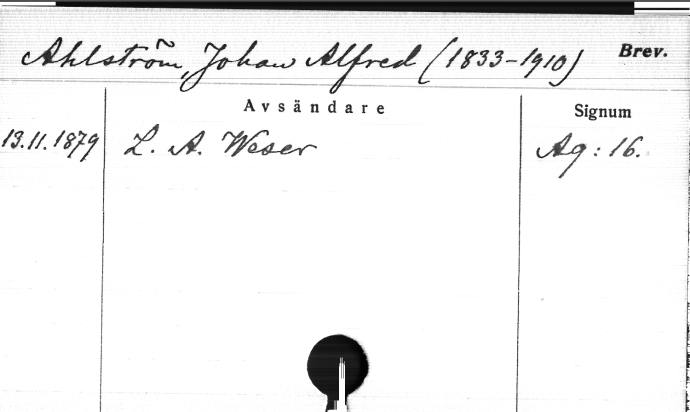 Ahlström, Johan Alfred (1833-1910) Brev.
Avsändare Signum
13.11.1879 L. A. Weser Ag: 16.